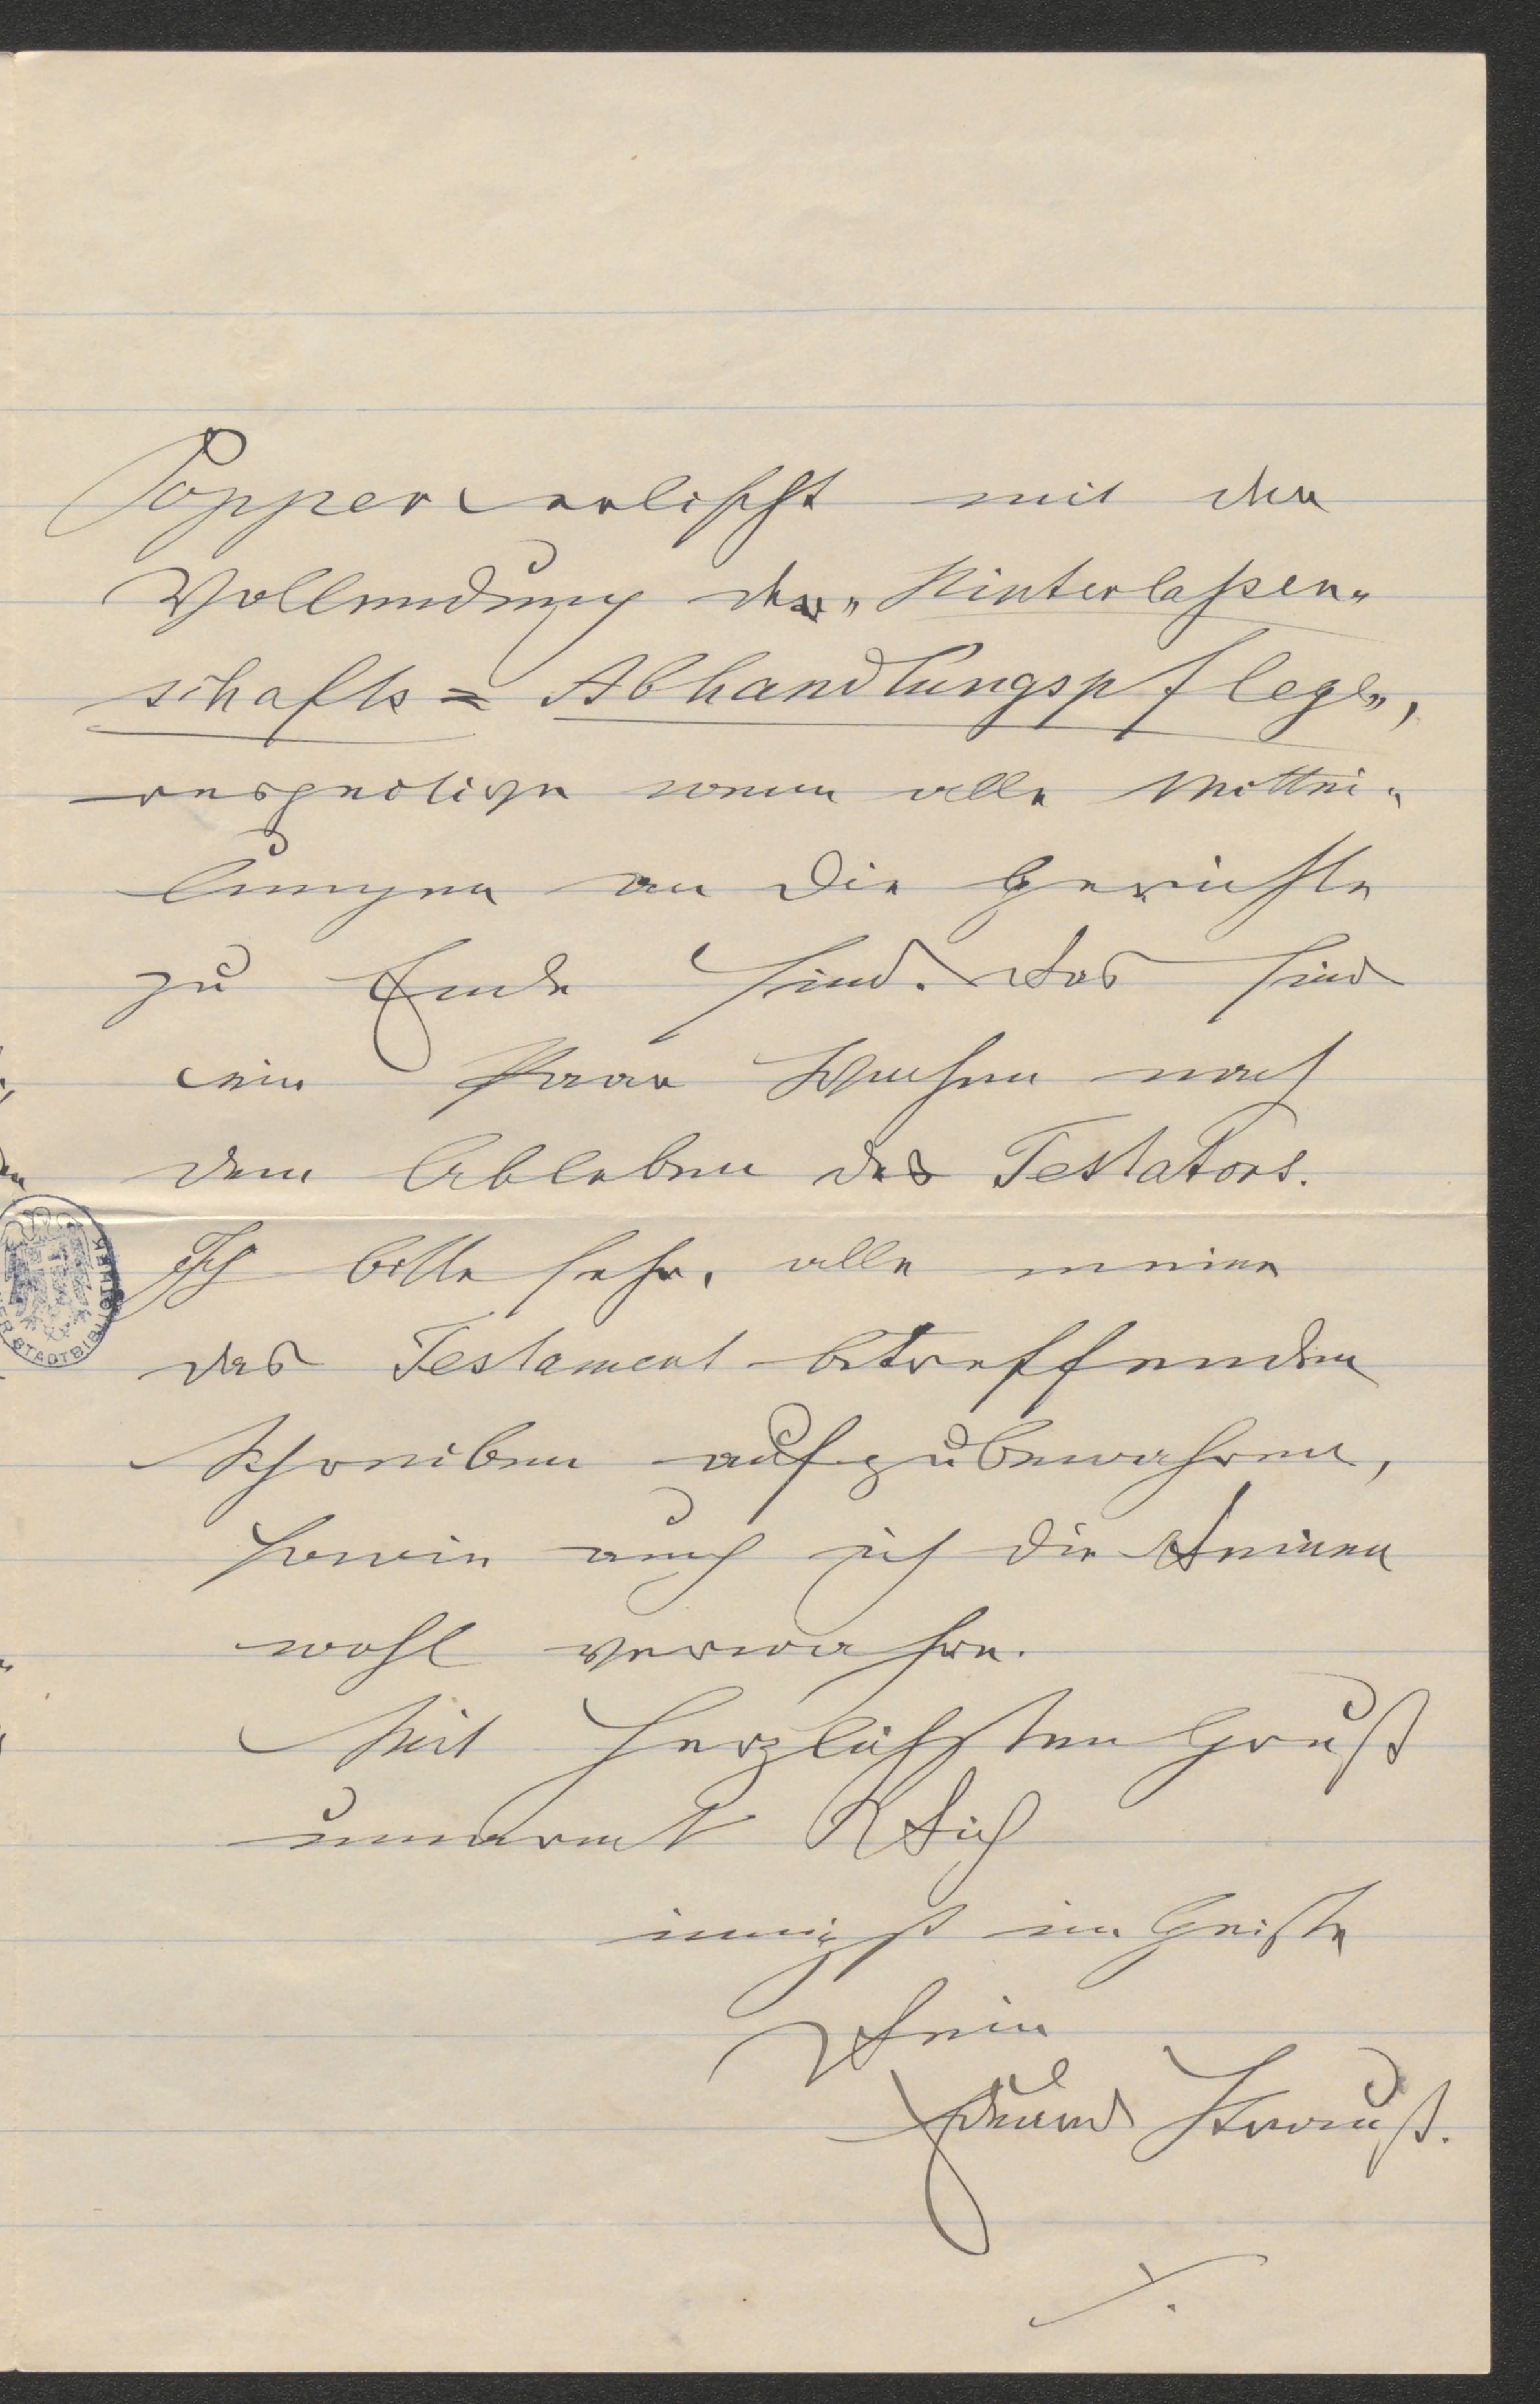 Popper erlischt mit der
Vollendung der „Hinterlaßen-
schafts= Abhandlungspflege",
respective wenn alle Mittei-
lungen an die Gerichte
zu Ende sind. Das sind
ein Paar Wochen nach
dem Ableben des Testators.
Ich bitte sehr, alle meine
das Testament betreffenden
Schreiben aufzubewahren,
sowie auch ich die Deinen
wohl verwahre.
Mit herzlichsten Gruß
umarmt Dich
innigst im Geiste
Dein
Eduard Strauß.
STADTBIBLIOTHEK